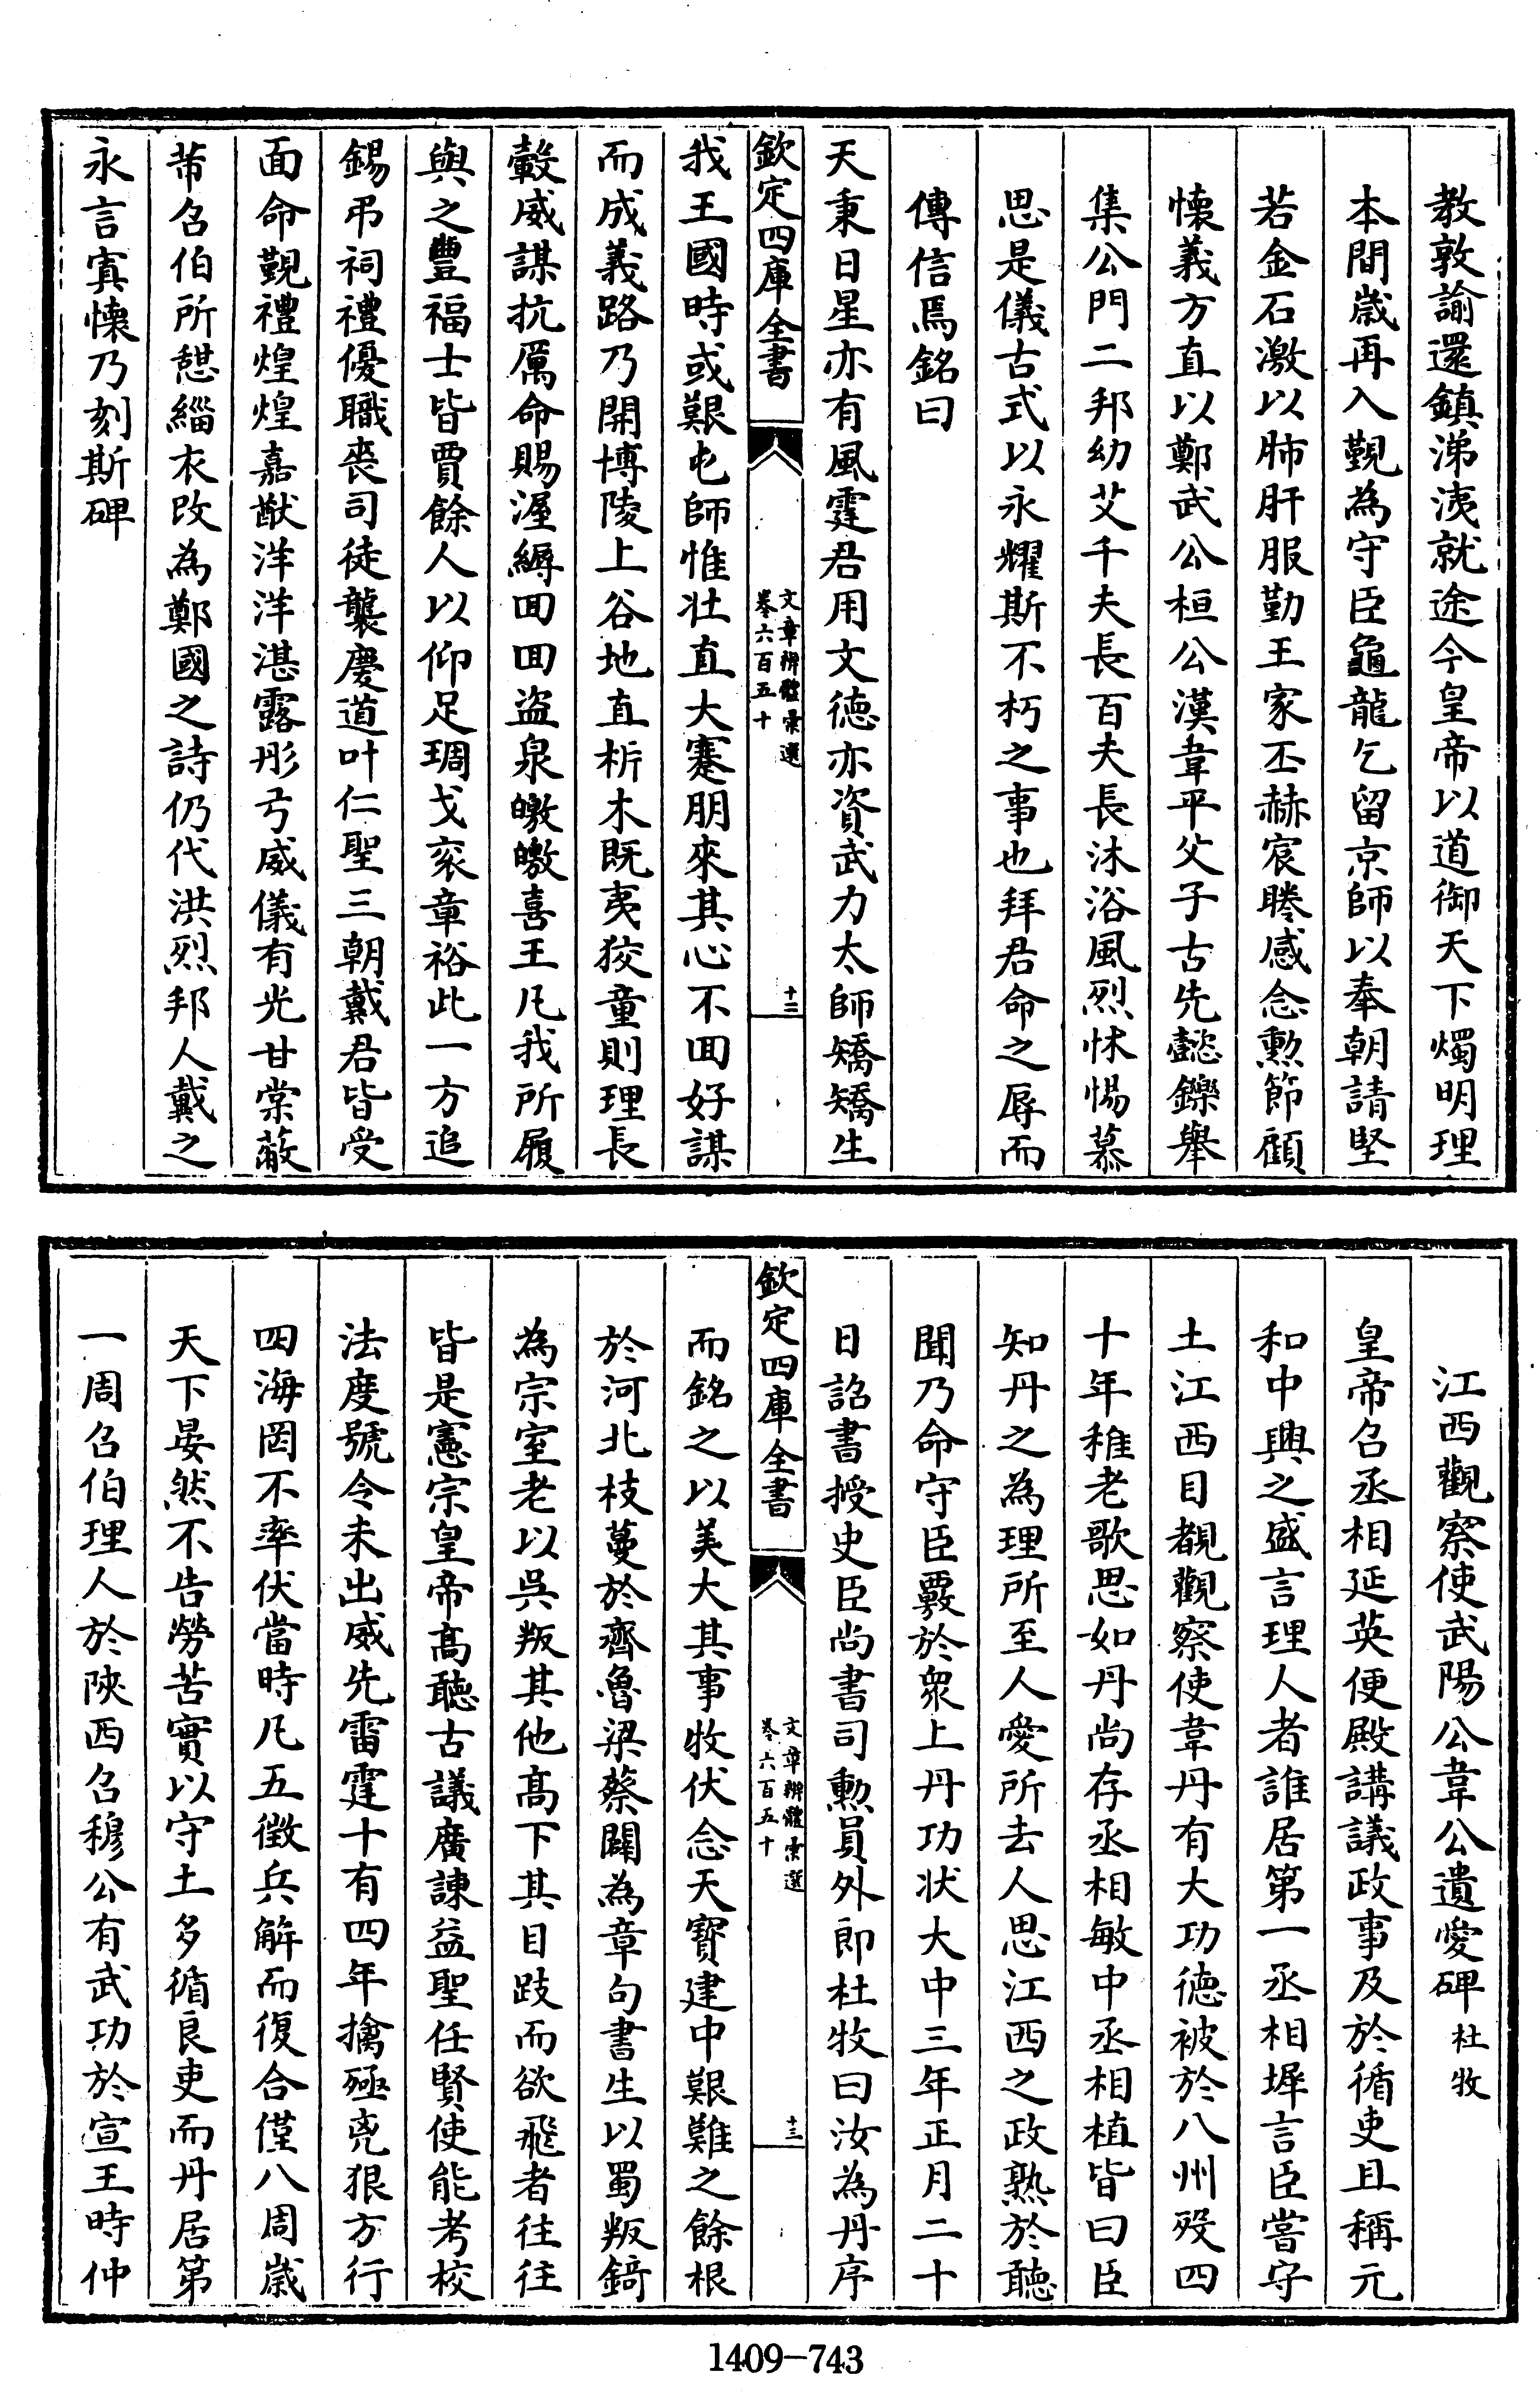 教敦諭還鎮涕洟就途今皇帝以道御天下燭明理
本間歲再入覲為守臣龜龍乞留京師以奉朝請堅
若金石激以肺肝服勤王家丕赫宸睠感念勲節顧
懐義方直以鄭武公桓公漢韋平父子古先懿鑠舉
集公門二邦幼艾千夫長百夫長沐浴風烈怵惕慕
思是儀古式以永耀斯不朽之事也拜君命之辱而
傳信焉銘曰
天秉日星亦有風霆君用文徳亦資武力太師矯矯生
欽定四庫全書
文章辨體彚選
卷六百五十
十二
我王國時或艱屯師惟壮直大蹇朋來其心不回好謀
而成義路乃開博陵上谷地直析木既夷狡童則理長
轂威謀抗厲命賜渥縟回回盗泉皦皦喜王凡我所履
與之豐福士皆賈餘人以仰足琱戈衮章裕此一方追
錫弔祠禮優職喪司徒襲慶道叶仁聖三朝戴君皆受
面命覲禮煌煌嘉猷洋洋湛露彤弓威儀有光甘棠蔽
芾召伯所憇緇衣改為鄭國之詩仍代洪烈邦人戴之
永言寘懐乃刻斯碑
江西觀察使武陽公韋公遺愛碑 杜牧
皇帝召丞相延英便殿講議政事及於循吏且稱元
和中興之盛言理人者誰居第一丞相墀言臣嘗守
土江西目覩觀察使韋丹有大功徳被於八州殁四
十年稚老歌思如丹尚存丞相敏中丞相植皆曰臣
知丹之為理所至人愛所去人思江西之政熟於聽
聞乃命守臣覈於衆上丹功状大中三年正月二十
日詔書授史臣尚書司勲員外郎杜牧曰汝為丹序
欽定四庫全書
文章辨體彚選
卷六百五十
十三
而銘之以美大其事牧伏念天寳建中艱難之餘根
於河北枝蔓於齊魯梁蔡闢為章句書生以蜀叛錡
為宗室老以吳叛其他髙下其目跂而欲飛者往往
皆是憲宗皇帝髙聽古議廣諫益聖任賢使能考校
法度號令未出威先雷霆十有四年擒殛兇狠方行
四海罔不率伏當時凡五徴兵解而復合僅八周歲
天下晏然不告勞苦實以守土多循良吏而丹居第
一周召伯理人於陜西召穆公有武功於宣王時仲
1409-743